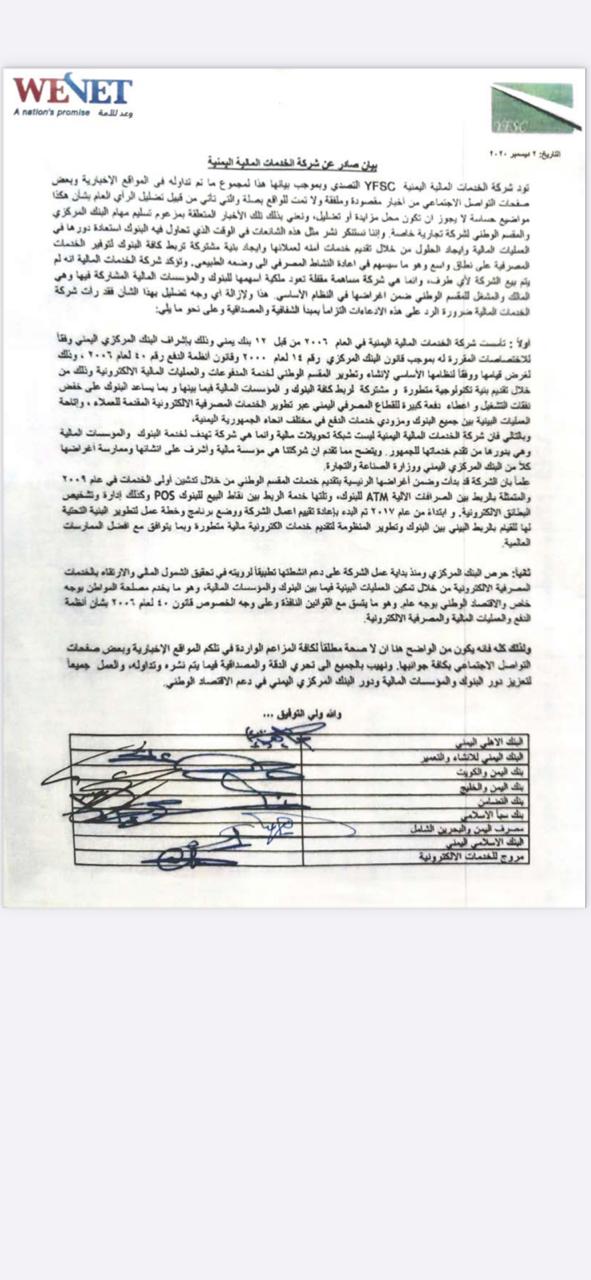 WENET
A nation's promise وعد للأمة
YFSC
التاريخ: ٢ ديسمبر ٢٠٢٠
بيان صادر عن شركة الخدمات المالية اليمنية
تود شركة الخدمات المالية اليمنية YFSC التصدي وبموجب بيانها هذا لمجموع ما تم تداوله في المواقع الاخبارية وبعض
صفحات التواصل الاجتماعي من أخبار مقصودة وملفقة ولا تمت للواقع بصلة والتي تأتي من قبيل تضليل الرأي العام بشأن هكذا
مواضيع حساسة لا يجوز ان تكون محل مزايدة أو تضليل، ونعني بذلك تلك الأخبار المتعلقة بمزعوم تسليم مهام البنك المركزي
والمقسم الوطني لشركة تجارية خاصة. وإننا نستنكر نشر مثل هذه الشائعات في الوقت الذي تحاول فيه البنوك استعادة دورها في
العمليات المالية وايجاد الحلول من خلال تقديم خدمات آمنه لعملائها وايجاد بنية مشتركة تربط كافة البنوك لتوفير الخدمات
المصرفية على نطاق واسع وهو ما سيسهم في اعادة النشاط المصرفي الى وضعه الطبيعي. وتؤكد شركة الخدمات المالية انه لم
يتم بيع الشركة لأي طرف، وانما هي شركة مساهمة مقفلة تعود ملكية اسهمها للبنوك والمؤسسات المالية المشاركة فيها وهي
المالك والمشغل للمقسم الوطني ضمن اغراضها في النظام الأساسي. هذا ولإزالة أي وجه تضليل بهذا الشأن فقد رأت شركة
الخدمات المالية ضرورة الرد على هذه الادعاءات التزاماً بمبدأ الشفافية والمصداقية وعلى نحو ما يلي:
أولاً : تأسست شركة الخدمات المالية اليمنية في العام ٢٠٠٦ من قبل ١٢ بنك يمني وذلك بإشراف البنك المركزي اليمني وفقاً
للاختصاصات المقررة له بموجب قانون البنك المركزي رقم ١٤ لعام ٢٠٠٠ وقانون أنظمة الدفع رقم ٤٠ لعام ٢٠٠٦ ، وذلك
لغرض قيامها ووفقاً لنظامها الأساسي لإنشاء وتطوير المقسم الوطني لخدمة المدفوعات والعمليات المالية الالكترونية وذلك من
خلال تقديم بنية تكنولوجية متطورة و مشتركة لربط كافة البنوك و المؤسسات المالية فيما بينها و بما يساعد البنوك على خفض
نفقات التشغيل و اعطاء دفعة كبيرة للقطاع المصرفي اليمني عبر تطوير الخدمات المصرفية الالكترونية المقدمة للعملاء ، وإتاحة
العمليات البينية بين جميع البنوك ومزودي خدمات الدفع في مختلف انحاء الجمهورية اليمنية،
وبالتالي فان شركة الخدمات المالية اليمنية ليست شبكة تحويلات مالية وانما هي شركة تهدف لخدمة البنوك والمؤسسات المالية
وهي بدورها من تقدم خدماتها للجمهور. ويتضح مما تقدم ان شركتنا هي مؤسسة مالية وأشرف على انشائها وممارسة أغراضها
كلاً من البنك المركزي اليمني ووزارة الصناعة والتجارة.
علماً بان الشركة قد بدأت وضمن أغراضها الرئيسية بتقديم خدمات المقسم الوطني من خلال تدشين أولى الخدمات في عام ٢٠٠٩
والمتمثلة بالربط بين الصرافات الآلية ATM للبنوك، وتلتها خدمة الربط بين نقاط البيع للبنوك POS وكذلك إدارة وتشخيص
البطائق الالكترونية. و ابتداءً من عام ٢٠١٧ تم البدء بإعادة تقييم اعمال الشركة ووضع برنامج وخطة عمل لتطوير البنية التحتية
لها للقيام بالربط البيني بين البنوك وتطوير المنظومة لتقديم خدمات الكترونية مالية متطورة وبما يتوافق مع افضل الممارسات
العالمية.
ثانياً: حرص البنك المركزي ومنذ بداية عمل الشركة على دعم انشطتها تطبيقاً لرويته في تحقيق الشمول المالي والارتقاء بالخدمات
المصرفية الالكترونية من خلال تمكين العمليات البينية فيما بين البنوك والمؤسسات المالية، وهو ما يخدم مصلحة المواطن بوجه
خاص والاقتصاد الوطني بوجه عام. وهو ما يتسق مع القوانين النافذة وعلى وجه الخصوص قانون ٤٠ لعام ٢٠٠٦ بشأن أنظمة
الدفع والعمليات المالية والمصرفية الالكترونية.
ولذلك كله فانه يكون من الواضح هنا ان لا صحة مطلقاً لكافة المزاعم الواردة في تلكم المواقع الإخبارية وبعض صفحات
التواصل الاجتماعي بكافة جوانبها. ونهيب بالجميع الى تحري الدقة والمصداقية فيما يتم نشره وتداوله، والعمل جميعاً
لتعزيز دور البنوك والمؤسسات المالية ودور البنك المركزي اليمني في دعم الاقتصاد الوطني.
والله ولي التوفيق ...
البنك الاهلي اليمني
البنك اليمني للانشاء والتعمير
بنك اليمن والكويت
بنك اليمن والخليج
بنك التضامن
بنك سبأ الاسلامي
مصرف اليمن والبحرين الشامل
البنك الاسلامي اليمني
مروج للخدمات الالكترونية